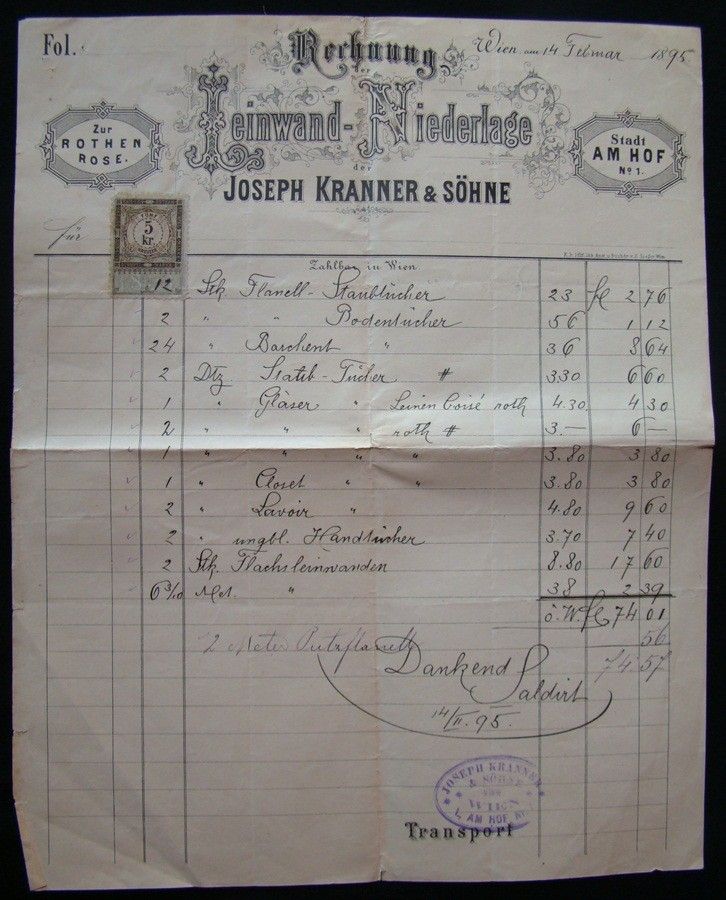 Fol.
Rechnung
Wien, am 14 Februar 1895
der
Leinwand-Niederlage
Zur
ROTHEN
ROSE.
Stadt
AM HOF
No 1.
der
JOSEPH KRANNER & SÖHNE
5
Kr.
für
Zahlbar in Wien.
12 Stk. Flanell-Staubtücher 23 fl 2 76
2 " " Bodentücher 56 1 12
24 " Barchent " 36 8 64
2 Dtz Staub-Tücher # 3.30 6 60
1 " Gläser " Leinen roth 4.30 4 30
2 " " " roth # 3.— 6 —
1 " " " " 3.80 3 80
1 " Closet " " 3.80 3 80
2 " Lavoir " 4.80 9 60
2 " ungbl. Handtücher 3.70 7 40
2 Stk. Flachsleinwanden 8.80 17 60
6 3/10 Met. " 38 2 39
ö.W. fl 74 01
2 Meter Putzflanell 56
74 57
Dankend
Saldirt
14/II. 95.
JOSEPH KRANNER
& SÖHNE
WIEN
I. AM HOF No
Transport